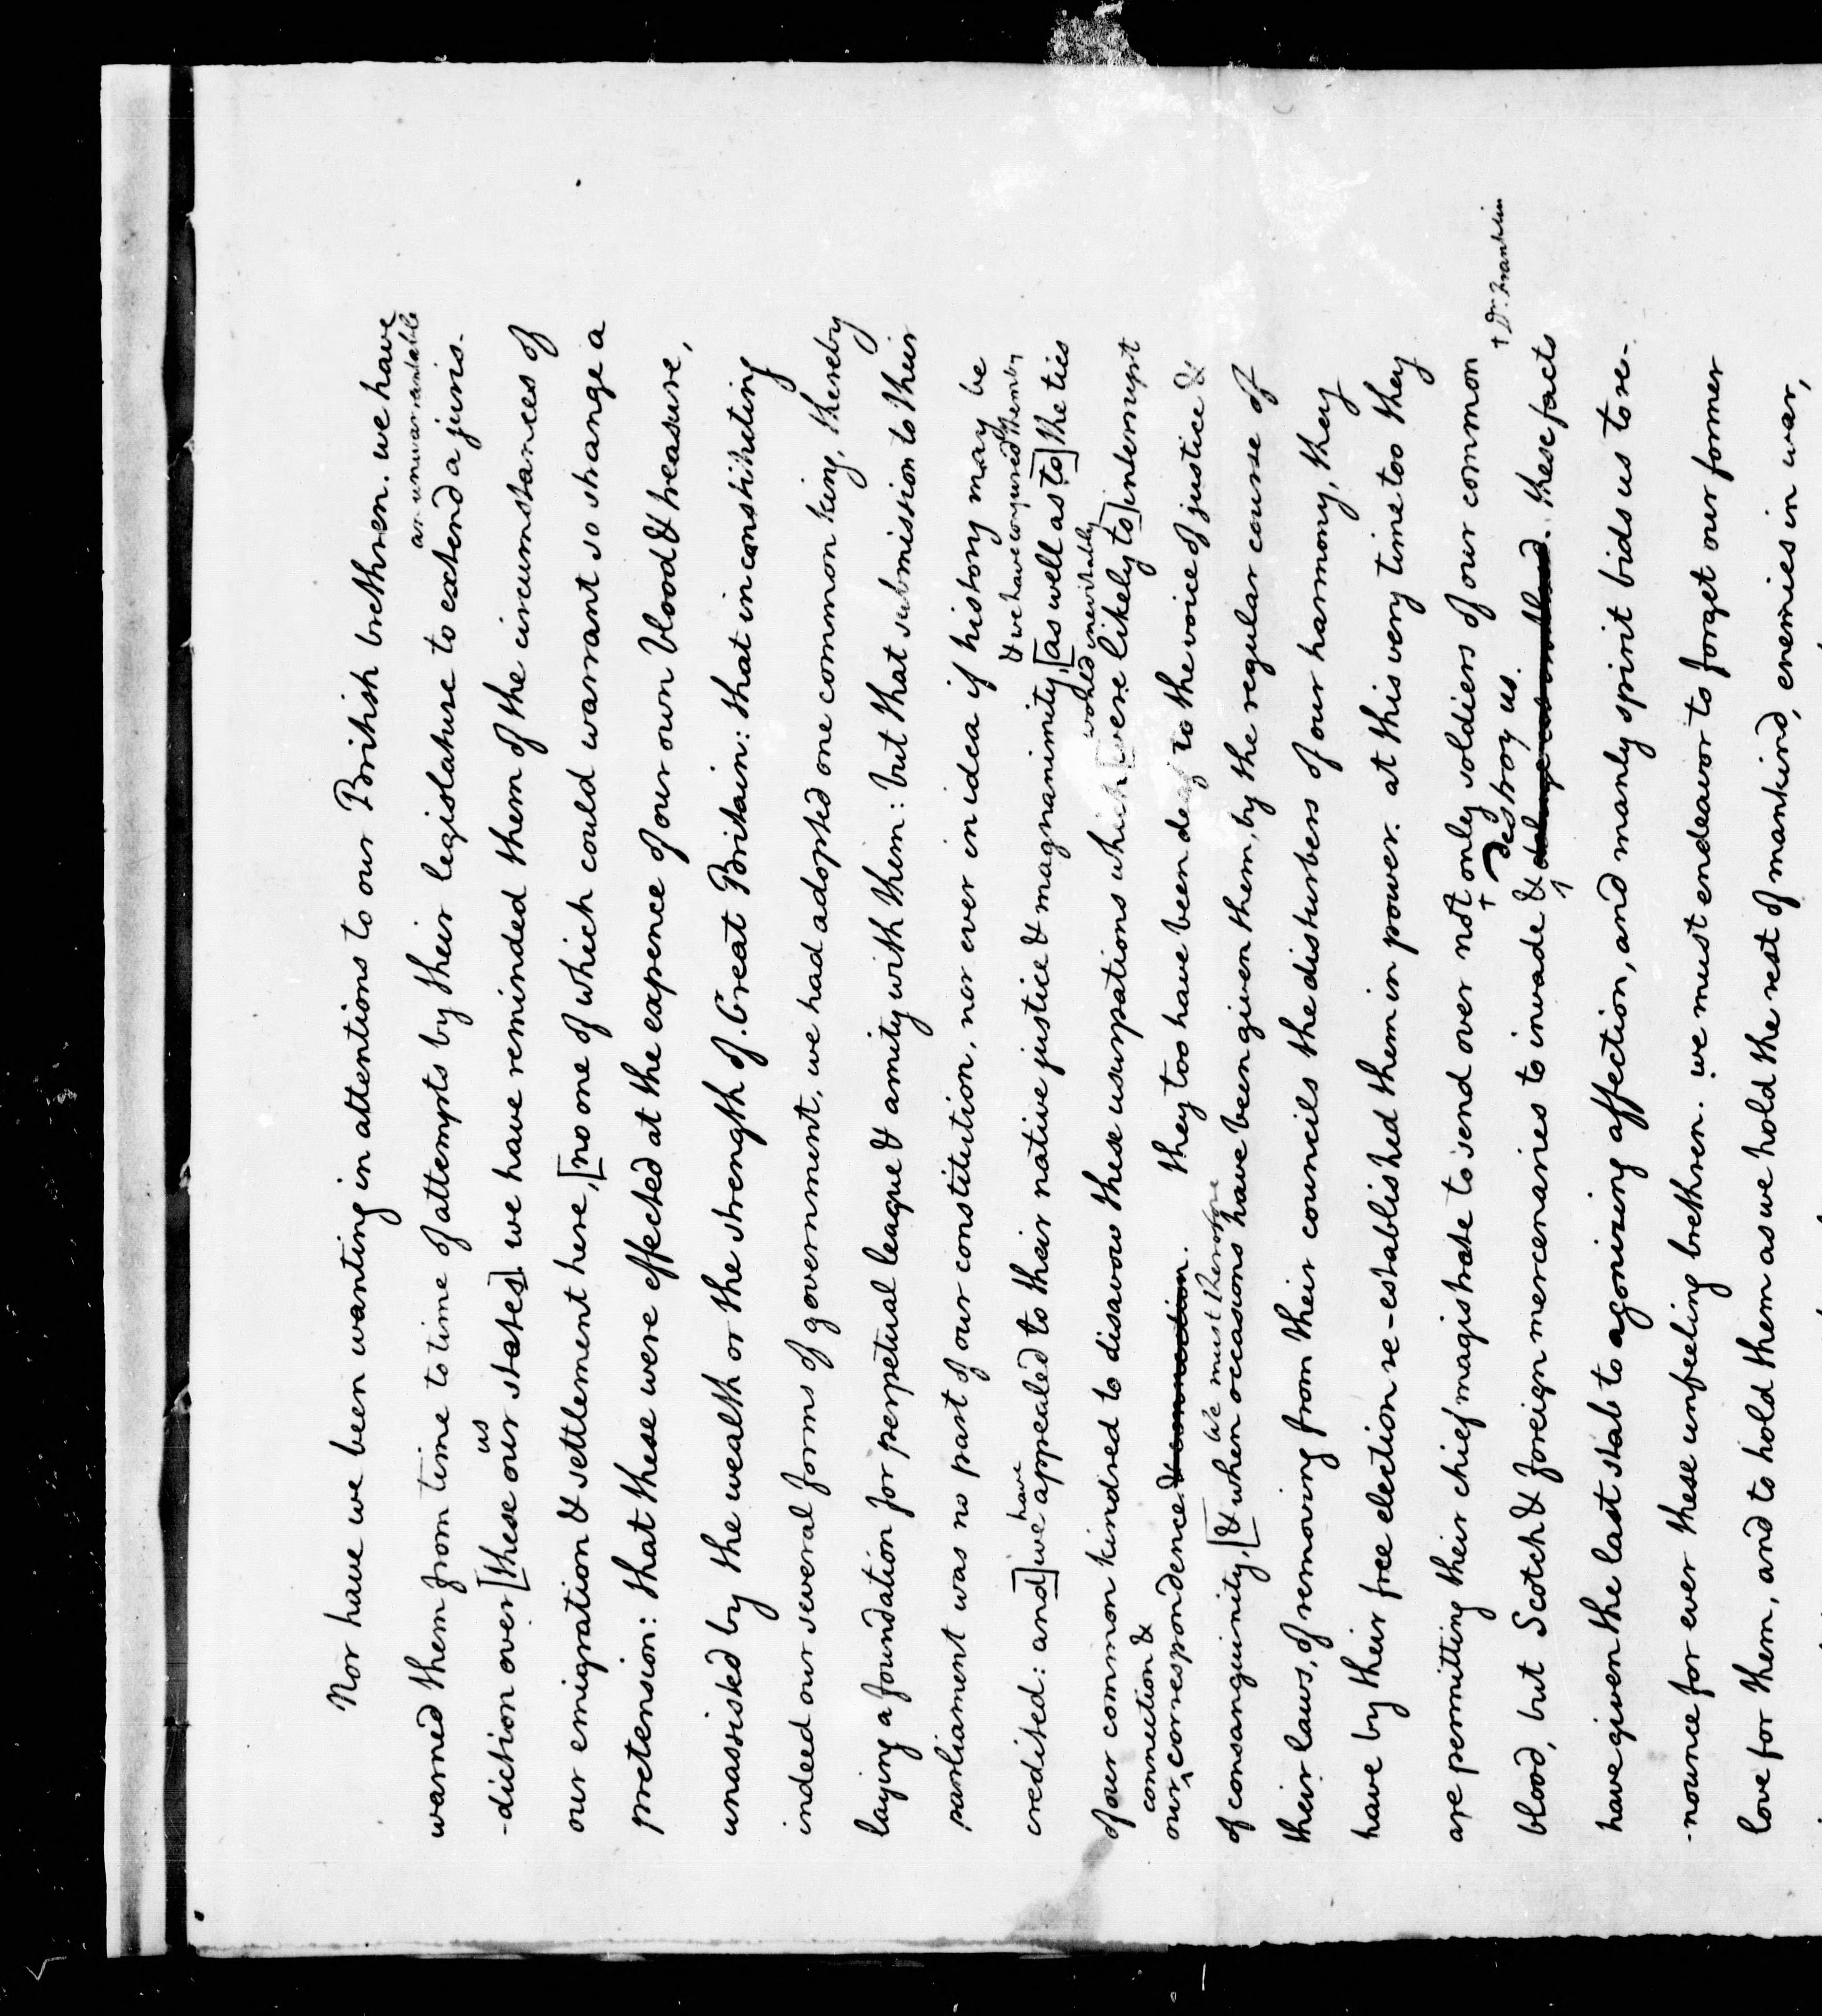 Nor have we been wanting in attentions to our British brethren. we have
an unwarrantable
warned them from time to time of attempts by their legislature to extend a juris-
us
-diction over [these our states]. we have reminded them of the circumstances of
our emigration & settlement here, [no one of which could warrant so strange a
pretension: that these were effected at the expence of our own blood & treasure,
unassisted by the wealth or the strength of Great Britain: that in constituting
indeed our several forms of government, we had adopted one common king, thereby
laying a foundation for perpetual league & amity with them: but that submission to their
parliament was no part of our constitution, nor ever in idea if history may be
have & we have conjured them by
credited: and] we appealed to their native justice & magnanimity, [as well as to] the ties
would inevitably
of our common kindred to disavow these usurpations which [were likely to] interrupt
connection &
our correspondence & connection. they too have been deaf to the voice of justice &
we must therefore
of consanguinity, [& when occasions have been given them, by the regular course of
their laws, of removing from their councils the disturbers of our harmony, they
have by their free election re-established them in power. at this very time too they
are permitting their chief magistrate to send over not only soldiers of our common
destroy us. † Dr. Franklin
blood, but Scotch & foreign mercenaries to invade & deluge us in blood. these facts
have given the last stab to agonizing affection, and manly spirit bids us to re-
-nounce for ever these unfeeling brethren. we must endeavor to forget our former
love for them, and to hold them as we hold the rest of mankind, enemies in war,